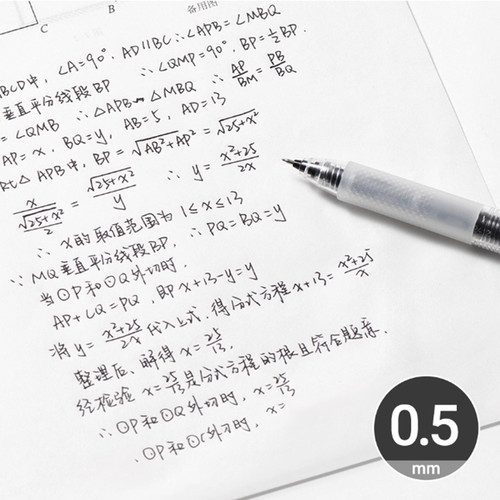 C B 备用图
BCD中, ∠A=90°. AD∥BC ∴∠APB=∠MBQ
垂直平分线段BP ∴∠QMP=90°, BP=½BP.
=∠QMB ∴△APB∽△MBQ ∴AP/BM=PB/BQ
AP=x, BQ=y, AB=5, AD=13
Rt△APB中, BP=√(AB²+AP²)=√(25+x²)
x/(√(25+x²)/2)=√(25+x²)/y ∴ y=(x²+25)/2x
∴ x的取值范围为 1≤x≤13
∵MQ垂直平分线段BP, ∴PQ=BQ=y
当⊙P和⊙Q外切时
AP+CQ=PQ, 即x+13-y=y
将y=(x²+25)/2x代入上式, 得分式方程x+13=(x²+25)/x
整理后, 解得x=25/13.
经检验 x=25/13是分式方程的根且符合题意.
∴⊙P和⊙Q外切时, x=25/13
⊙P和⊙C外切时, x=
0.5
mm